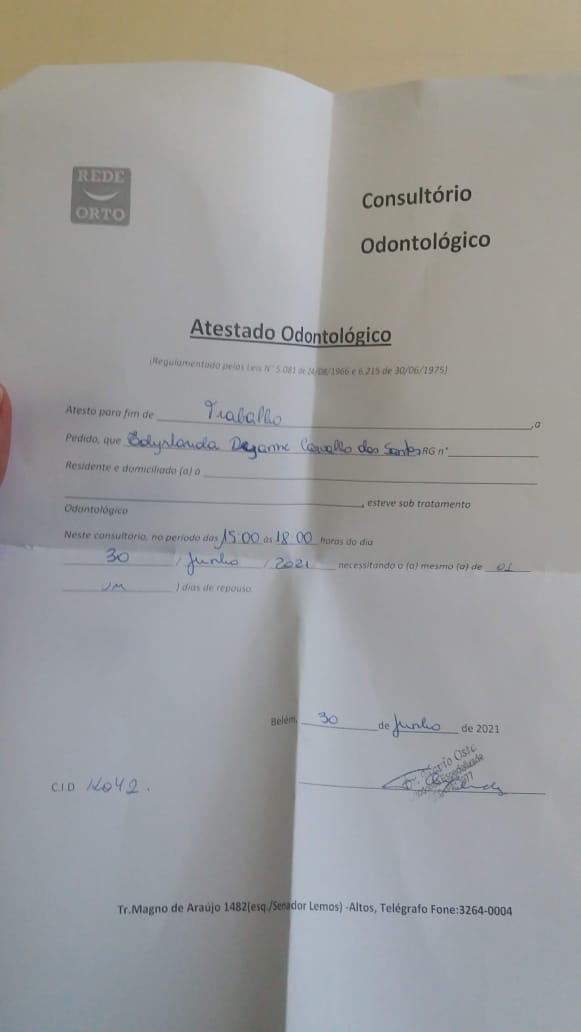 REDE
ORTO
Consultório
Odontológico
Atestado Odontológico
(Regulamentado pelas Leis N° 5.081 de 24/08/1966 e 6.215 de 30/06/1975)
Atesto para fim de Trabalho ,a
Pedido, que Edyrlanda Dayanne Carvalho dos Santos RG n°
Residente e domiciliado (a) à
, esteve sob tratamento
Odontológico
Neste consultório, no período das 15:00 às 18 00 horas do dia
30 / Junho / 2021 necessitando o (a) mesmo (a) de 01
um ) dias de repouso.
Belém, 30 de Junho de 2021
C.I.D K042.
Tr.Magno de Araújo 1482(esq./Senador Lemos) -Altos, Telégrafo Fone:3264-0004